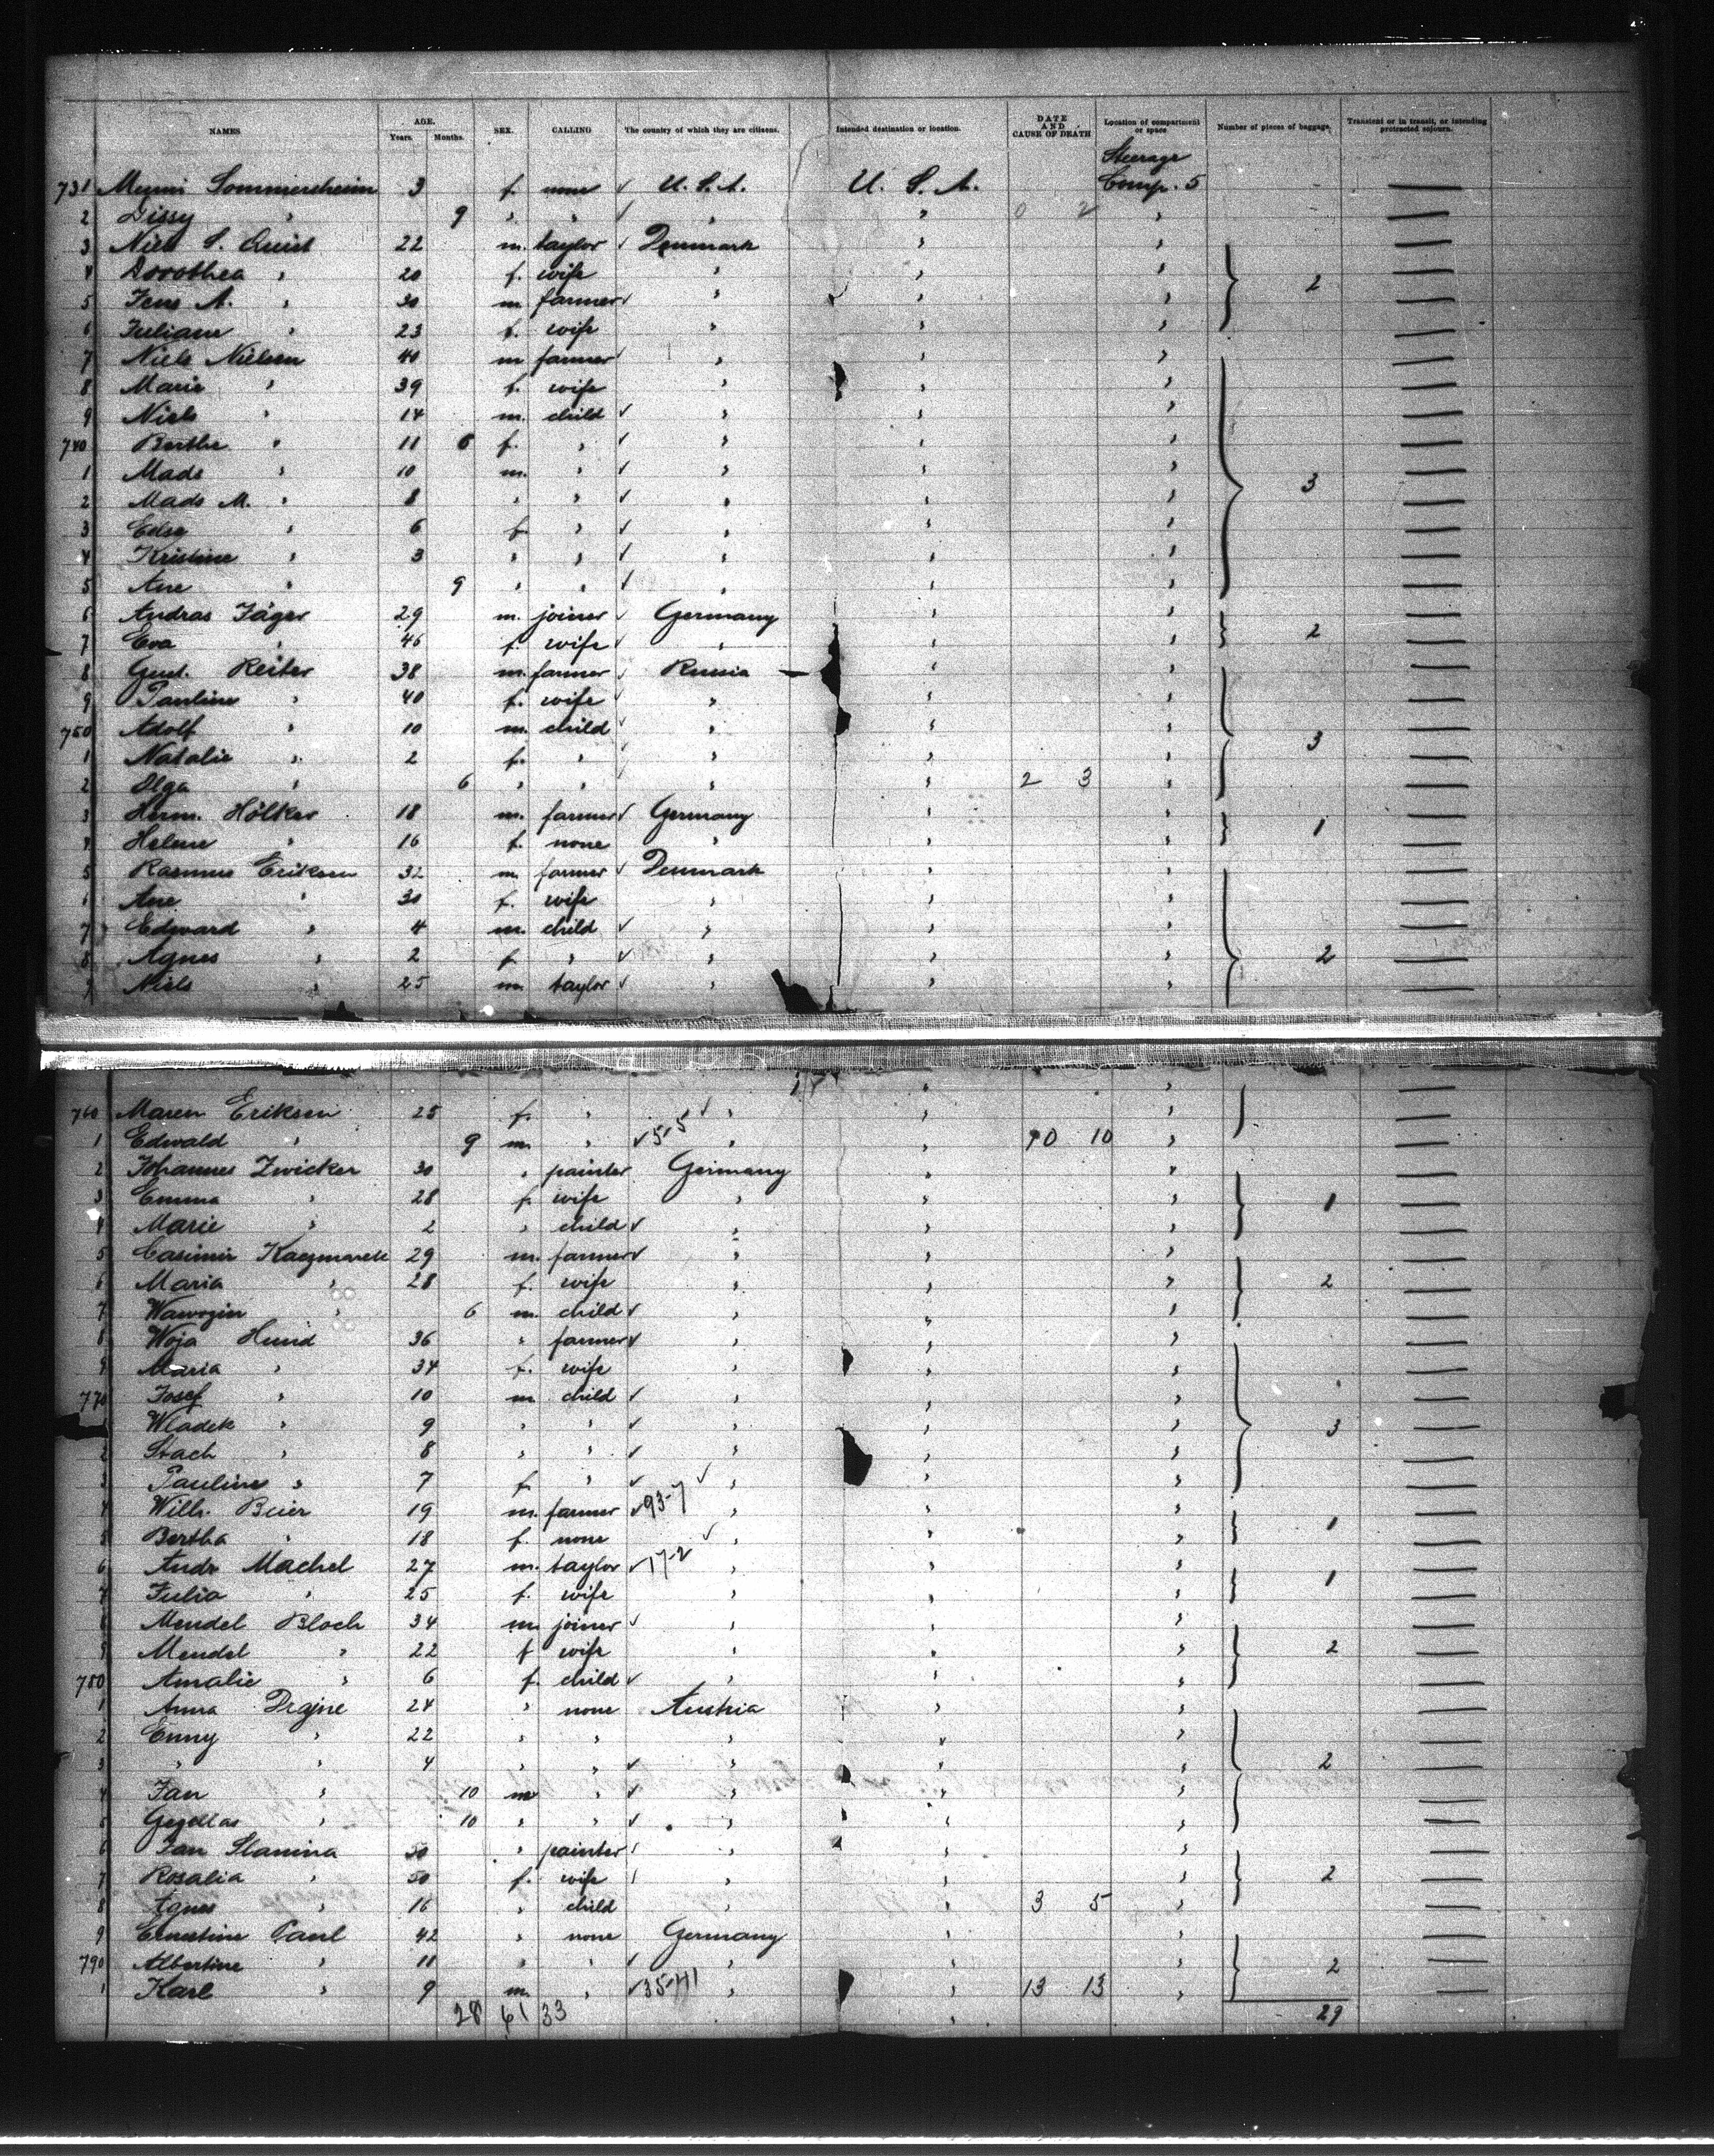 NAMES AGE. Years. Months. SEX. CALLING The country of which they are citizens. Intended destination or location. DATE AND CAUSE OF DEATH Location of compartment or space. Number of pieces of baggage. Transient or in transit, or intending protracted sojourn.
Steerage
731 Sommersheim 3 f. none ✓ U. S. A. U. S. A. Comp. 5 —
2 Lissy " 9 " " ✓ " " 0 2 " —
3 Niels S. Quist 22 m. taylor ✓ Denmark " " —
4 Dorothea " 20 f. wife " " " 2 —
5 Jens A. " 30 m. farmer ✓ " " " —
6 Juliane " 23 f. wife " " " —
7 Niels Nielsen 40 m farmer ✓ " " " —
8 Marie " 39 f. wife " " " —
9 Niels " 14 m. child ✓ " " " —
740 Berthe " 11 6 f. " ✓ " " " —
1 Mads " 10 m. " ✓ " " " 3 —
2 Mads M. " 8 " " ✓ " " " —
3 " 6 f " ✓ " " " —
4 Kristine " 3 " " ✓ " " " —
5 Ane " 9 " " ✓ " " " —
6 Andras Jäger 29 m. joiner ✓ Germany " " 2 —
7 Eva " 46 f. wife ✓ " " " —
8 Gust. Reiter 38 m. farmer ✓ Russia — " " —
9 Pauline " 40 f. wife ✓ " " " —
750 Adolf " 10 m. child ✓ " " " 3 —
1 Natalie " 2 f. " ✓ " " " —
2 Olga " 6 " " ✓ " " 2 3 " —
3 Herm. Hölker 18 m. farmer ✓ Germany " " 1 —
4 Helene " 16 f. none " " " —
5 Rasmus Eriksen 32 m. farmer ✓ Denmark " " —
6 Ane " 30 f. wife " " " —
7 Edward " 4 m. child ✓ " " " —
8 Agnes " 2 f " ✓ " " " 2 —
9 Niels " 25 m. taylor ✓ " " " —
760 Maren Eriksen 25 f. " ✓ " " " —
1 Edwald " 9 m. " ✓ 5-5 " " 10 10 " —
2 Johannes Zwicker 30 " painter Germany " " —
3 Emma " 28 f. wife " " " 1 —
4 Marie " 2 " child ✓ " " " —
5 Casimir Kaczmarek 29 m. farmer ✓ " " " —
6 Maria " 28 f. wife " " " 2 —
7 Wawrzin " 6 m. child ✓ " " " —
8 Woja Hund 36 " farmer ✓ " " " —
9 Maria " 34 f. wife " " " —
770 Josef " 10 m child ✓ " " " —
1 Wladek " 9 " " ✓ " " " 3 —
2 Stach " 8 " " ✓ " " " —
3 Pauline " 7 f " ✓ ✓ " " " —
4 Wilh. Beier 19 m. farmer ✓ 93-7 " " " 1 —
5 Bertha " 18 f. none ✓ " " " —
6 Andr Machel 27 m. taylor ✓ 17-2 " " " 1 —
7 Julia " 25 f. wife " " " —
8 Mendel Bloch 34 m. joiner ✓ " " " —
9 Mendel " 22 f wife " " " 2 —
780 Amalie " 6 f. child ✓ " " " —
1 Anna 24 " none Austria " " —
2 Enny " 22 " " " " " —
3 " " 4 " " ✓ " " " 2 —
4 Jan " 10 m " ✓ " " " —
5 " 10 " " ✓ " " " —
6 Jan Slamina 50 " painter ✓ " " " —
7 Rosalia " 50 f. wife ✓ " " " 2 —
8 Agnes " 16 " child " " 3 5 " —
9 Ernestine Paul 42 " none Germany " " —
790 Albertine " 11 " " ✓ " " " 2 —
1 Karl " 9 m. " ✓ 35-41 " " 13 13 " —
28 61 33 " 29